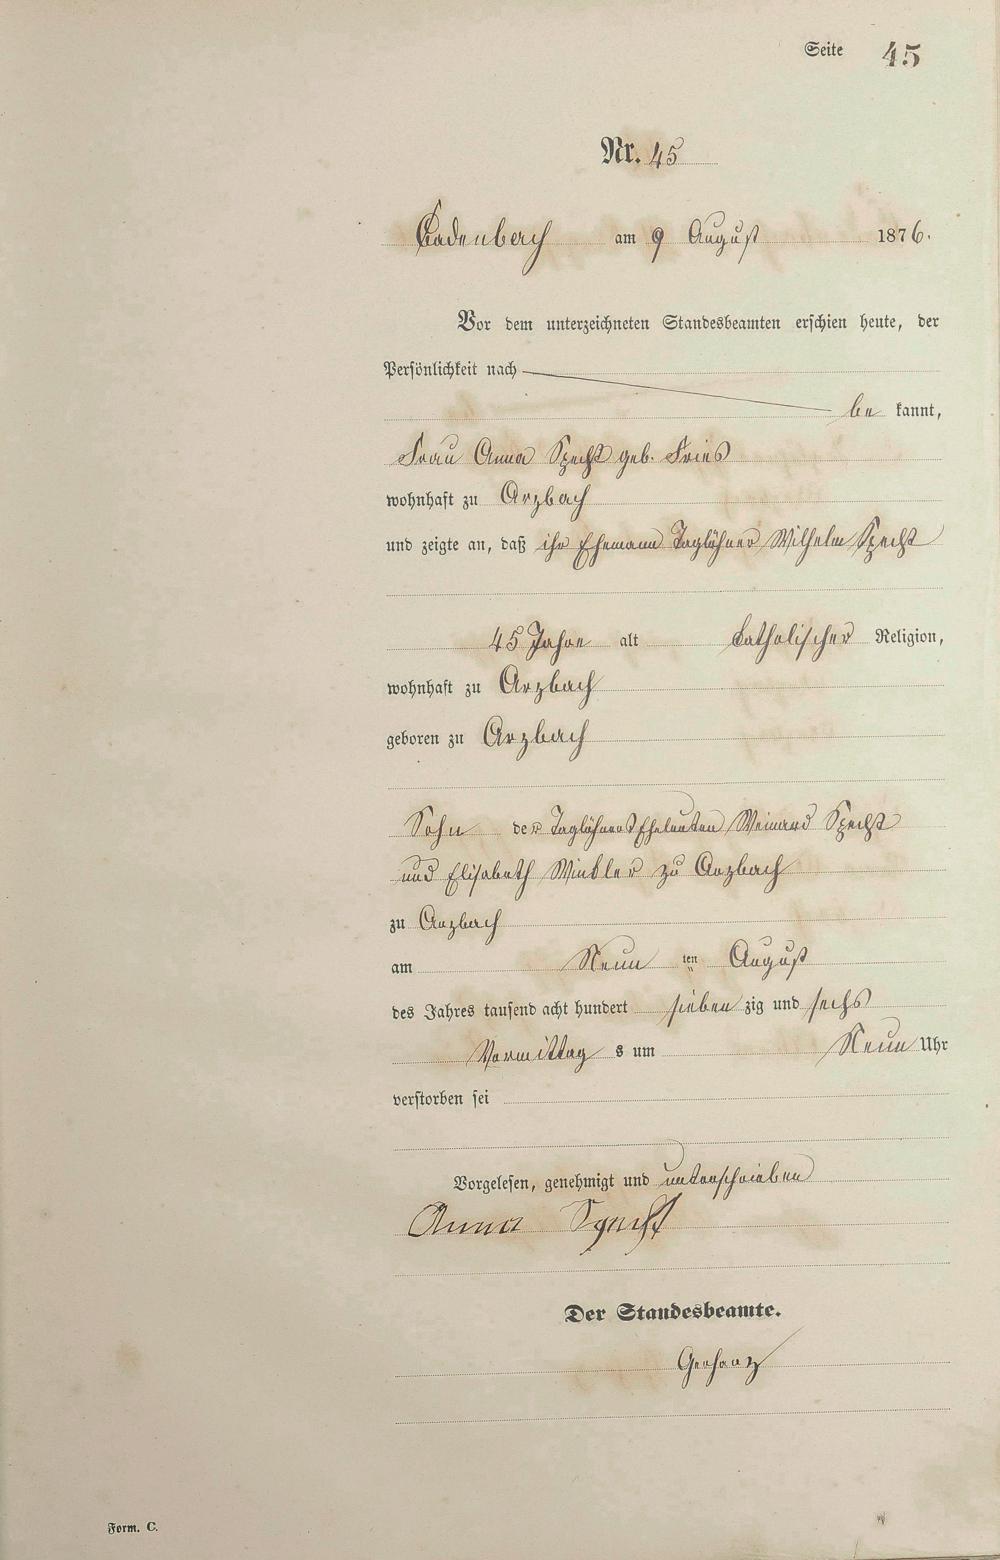 Seite 45
Nr. 45
Cadenbach am 9 August 1876.
Vor dem unterzeichneten Standesbeamten erschien heute, der
Persönlichkeit nach
be kannt,
Frau Anna Specht geb. Fries
wohnhaft zu Arzbach
und zeigte an, daß ihr Ehemann Taglöhner Wilhelm Specht
45 Jahre alt katholischer Religion,
wohnhaft zu Arzbach
geboren zu Arzbach
Sohn der Taglöhners Eheleuten Weinand Specht
und Elisabeth Winkler zu Arzbach
zu Arzbach
am Neun ten August
des Jahres tausend acht hundert sieben zig und sechs
Vormittag s um Neun Uhr
verstorben sei
Vorgelesen, genehmigt und unterschrieben
Anna Specht
Der Standesbeamte.
Gerharz
Form. C.